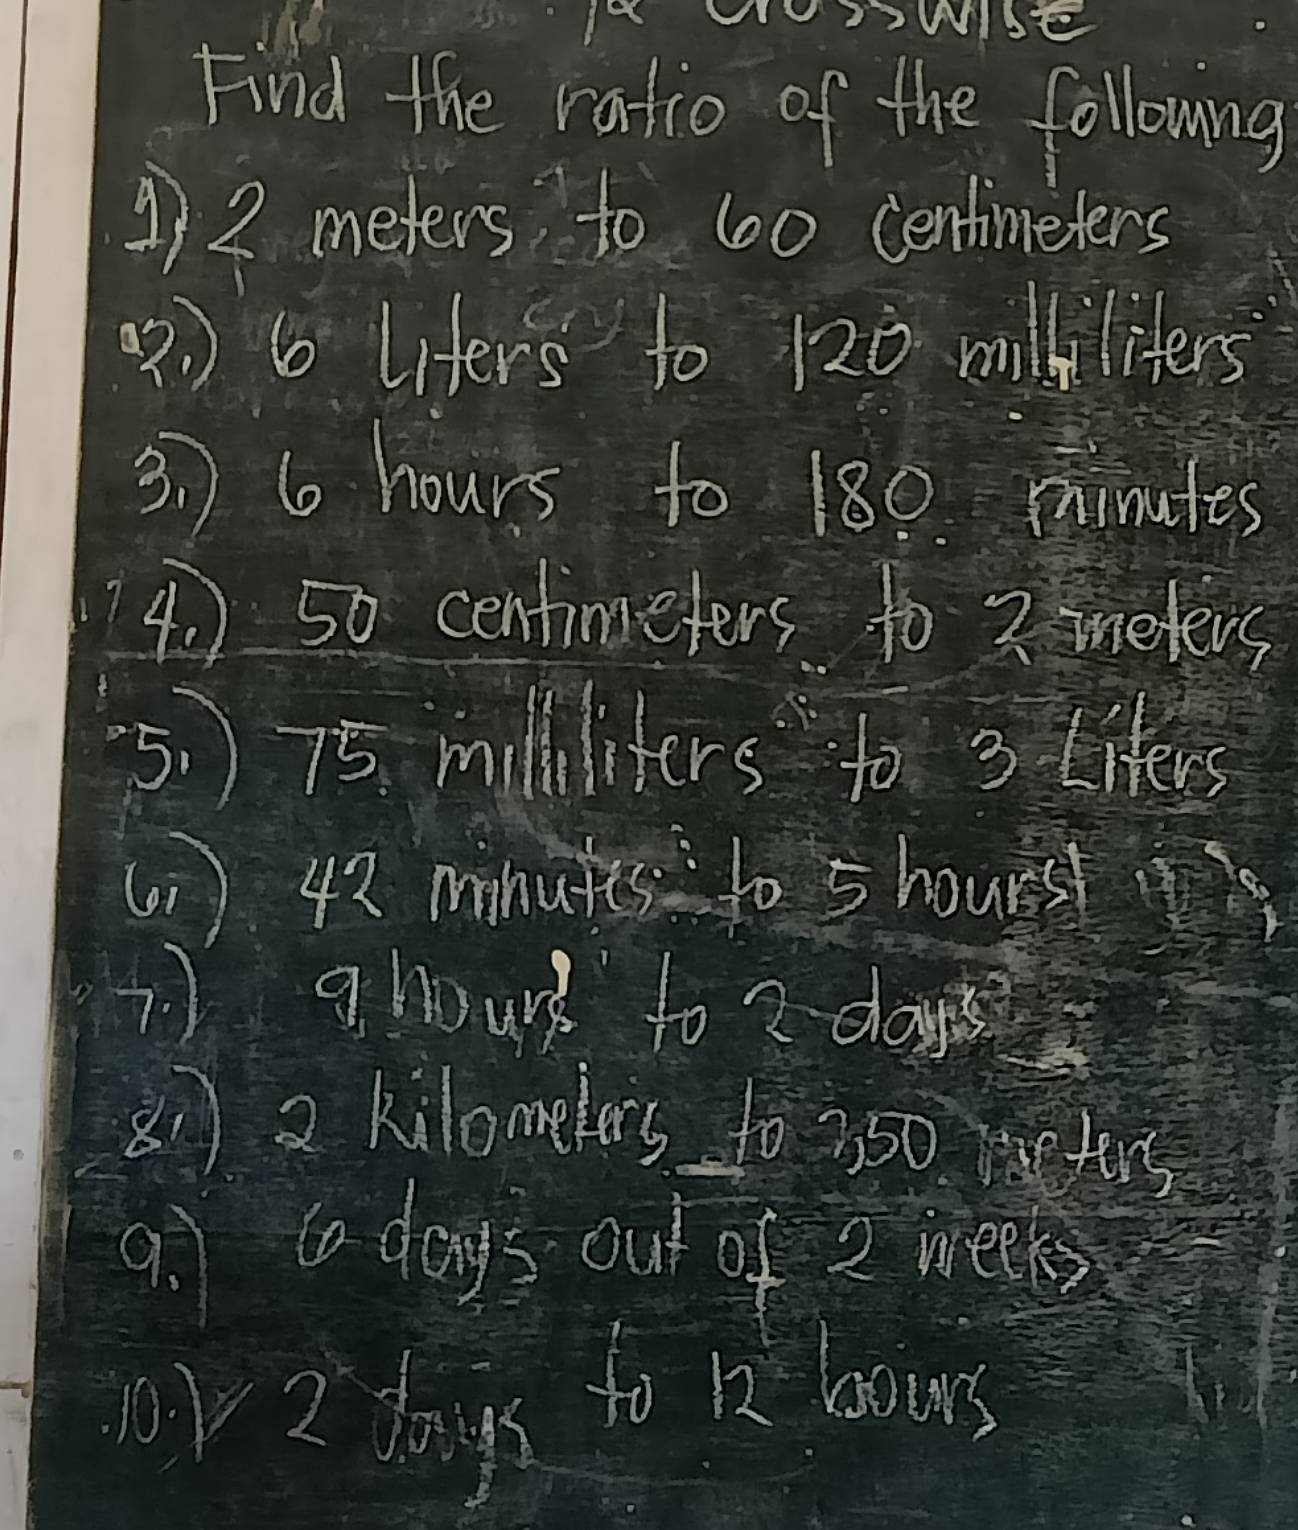 1/2 crosswise
Find the ratio of the following
1.) 2 meters to 60 centimeters
2.) 6 Liters to 120 milliliters
3.) 6 hours to 180 minutes
4.) 50 centimeters to 2 meters
5.) 75 milliliters to 3 Liters
6.) 42 minutes to 5 hours
7.) 9 hours to 2 days
8.) 2 kilometers to meters
9.) 6 days out of 2 weeks
10.) 2 days to 12 hours